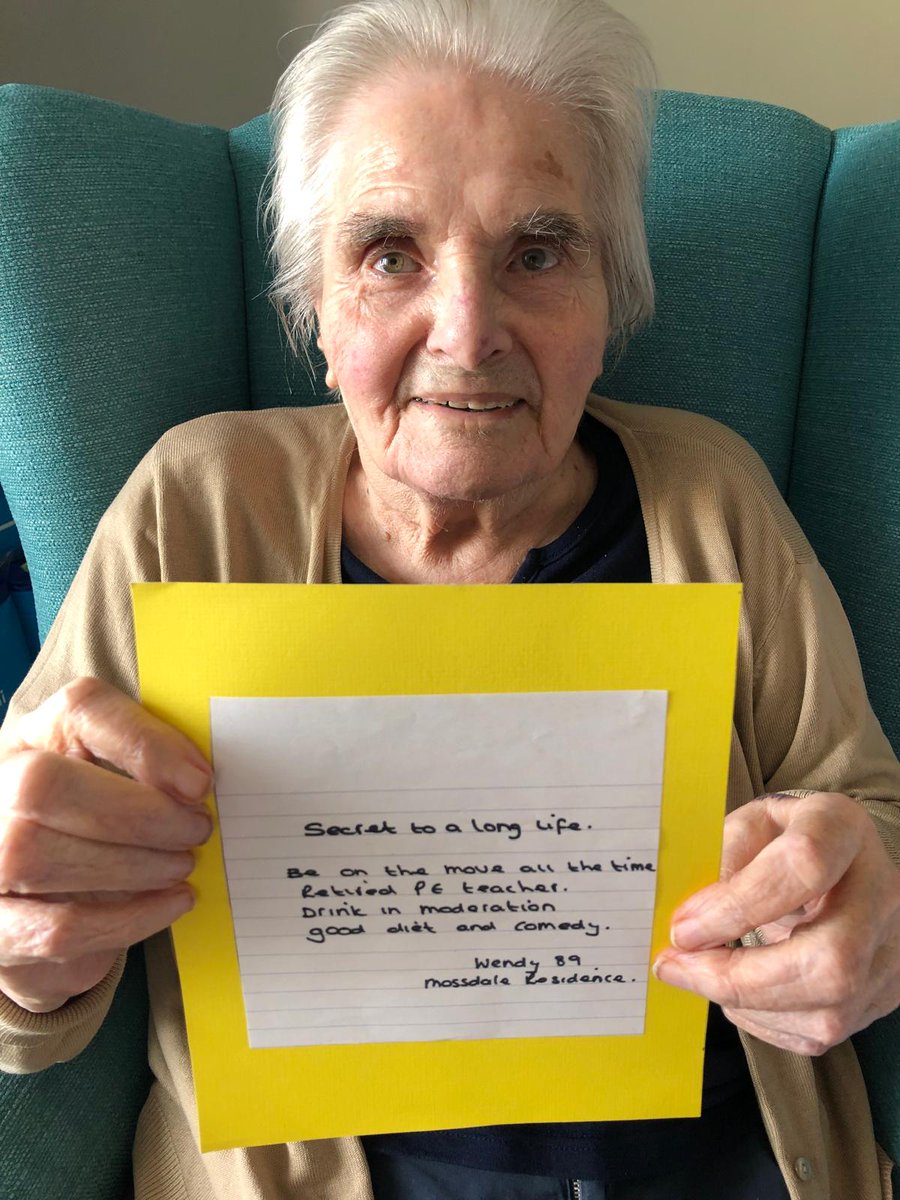 Secret to a long life.
Be on the move all the time
Retired PE teacher.
Drink in moderation
good diet and comedy.
Wendy 89
Mossdale Residence.